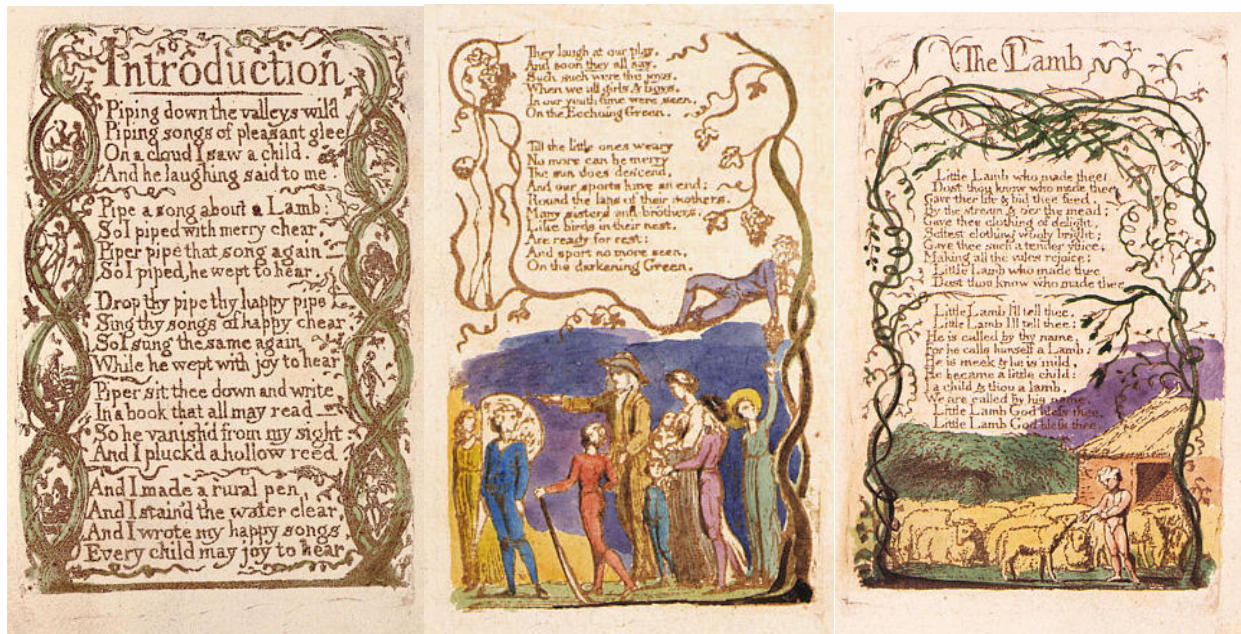 Introduction
Piping down the valleys wild
Piping songs of pleasant glee
On a cloud I saw a child.
And he laughing said to me.
Pipe a song about a Lamb:
So I piped with merry chear,
Piper pipe that song again—
So I piped, he wept to hear.
Drop thy pipe thy happy pipe
Sing thy songs of happy chear,
So I sung the same again
While he wept with joy to hear
Piper sit thee down and write
In a book that all may read—
So he vanish'd from my sight
And I pluck'd a hollow reed
And I made a rural pen,
And I stain'd the water clear,
And I wrote my happy songs
Every child may joy to hear
They laugh at our play,
And soon they all say.
Such such were the joys.
When we all girls & boys.
In our youth-time were seen,
On the Ecchoing Green.
Till the little ones weary
No more can be merry
The sun does descend,
And our sports have an end:
Round the laps of their mothers.
Many sisters and brothers,
Like birds in their nest,
Are ready for rest:
And sport no more seen,
On the darkening Green.
The Lamb
Little Lamb who made thee
Dost thou know who made thee
Gave thee life & bid thee feed.
By the stream & o'er the mead;
Gave thee clothing of delight,
Softest clothing wooly bright;
Gave thee such a tender voice,
Making all the vales rejoice:
Little Lamb who made thee
Dost thou know who made thee
Little Lamb I'll tell thee,
Little Lamb I'll tell thee;
He is called by thy name,
For he calls himself a Lamb:
He is meek & he is mild,
He became a little child:
I a child & thou a lamb,
We are called by his name.
Little Lamb God bless thee.
Little Lamb God bless thee.